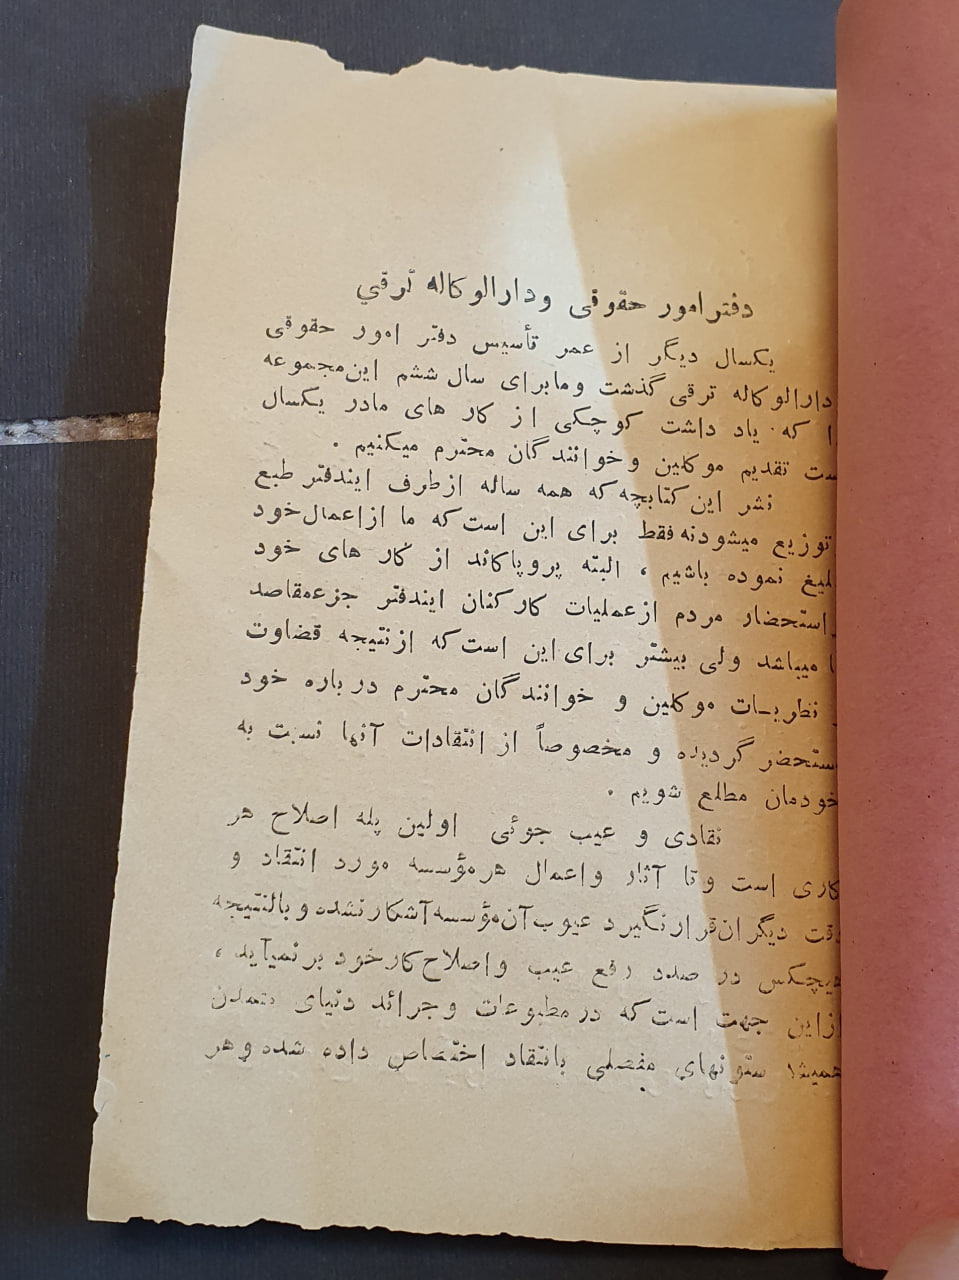 دفتر امور حقوقی و دارالوکاله ترقی
یکسال دیگر از عمر تأسیس دفتر امور حقوقی
دارالوکاله ترقی گذشت و ما برای سال ششم این مجموعه
را که یاد داشت کوچکی از کار های ما در یکسال
تقدیم موکلین و خوانندگان محترم میکنیم .
نشر این کتابچه که همه ساله از طرف ایندفتر طبع
توزیع میشود نه فقط برای این است که ما از اعمال خود
نموده باشیم ، البته پروپاکاند از کار های خود
استحضار مردم از عملیات کارکنان ایندفتر جزء مقاصد
میباشد ولی بیشتر برای این است که از نتیجه قضاوت
نظریات موکلین و خوانندگان محترم در باره خود
گردیده و مخصوصاً از انتقادات آنها نسبت به
خودمان مطلع شویم .
نقادی و عیب جوئی اولین پله اصلاح هر
کاری است و تا آثار و اعمال هر مؤسسه مورد انتقاد و
دقت دیگران قرار نگیرد عیوب آن مؤسسه آشکار نشده و بالنتیجه
هیچکس در صدد رفع عیب و اصلاح کار خود بر نمیآید ،
از این جهت است که در مطبوعات و جرائد دنیای متمدن
همیشه ستونهای مفصلی بانتقاد اختصاص داده شده و هر